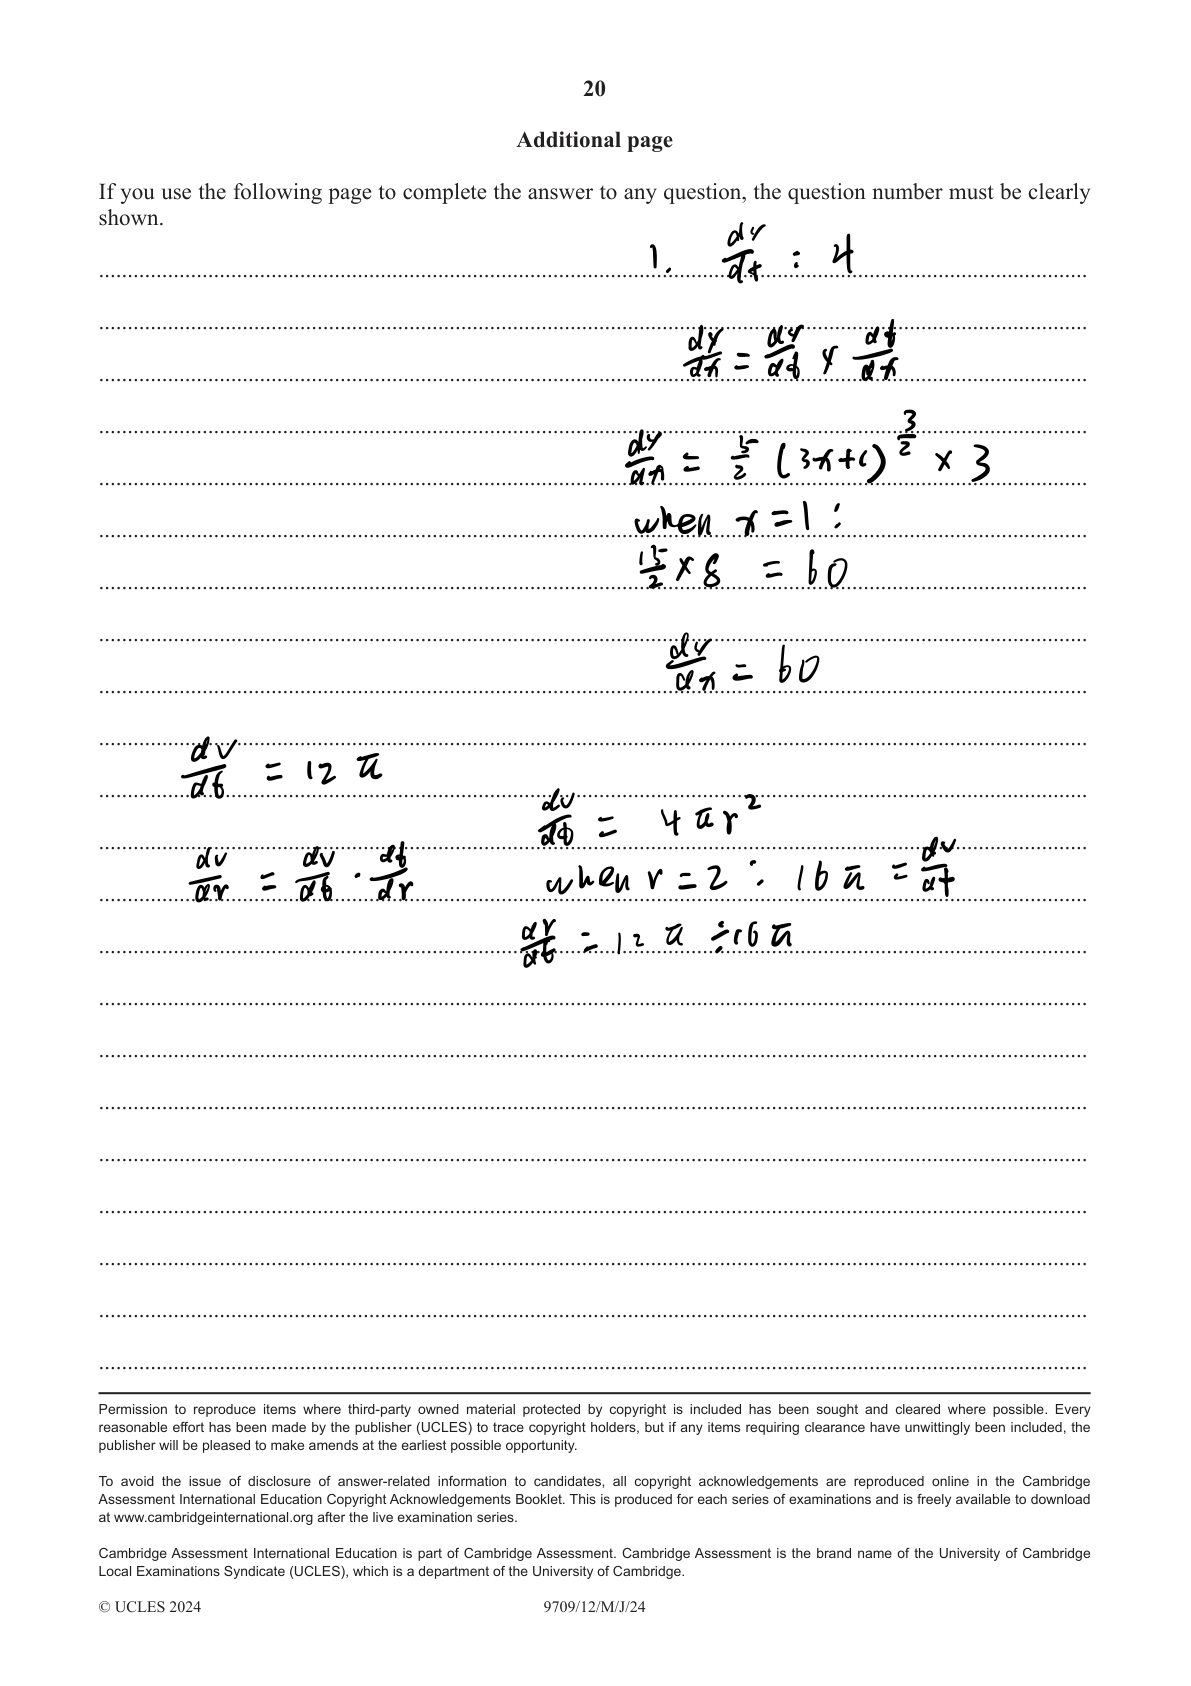 20
Additional page
If you use the following page to complete the answer to any question, the question number must be clearly
shown.
1. dy/dt : 4
dy/dx = dy/dt × dt/dx
dy/dx = 5/2 (3x+1)^(3/2) × 3
when x = 1 :
15/2 × 8 = 60
dy/dx = 60
dv/dt = 12 π
dv/dt = 4 π r²
dv/dr = dv/dt · dt/dr
when r = 2 : 16 π = dv/dt
dr/dt = 12 π ÷ 16 π
Permission to reproduce items where third-party owned material protected by copyright is included has been sought and cleared where possible. Every
reasonable effort has been made by the publisher (UCLES) to trace copyright holders, but if any items requiring clearance have unwittingly been included, the
publisher will be pleased to make amends at the earliest possible opportunity.
To avoid the issue of disclosure of answer-related information to candidates, all copyright acknowledgements are reproduced online in the Cambridge
Assessment International Education Copyright Acknowledgements Booklet. This is produced for each series of examinations and is freely available to download
at www.cambridgeinternational.org after the live examination series.
Cambridge Assessment International Education is part of Cambridge Assessment. Cambridge Assessment is the brand name of the University of Cambridge
Local Examinations Syndicate (UCLES), which is a department of the University of Cambridge.
© UCLES 2024
9709/12/M/J/24